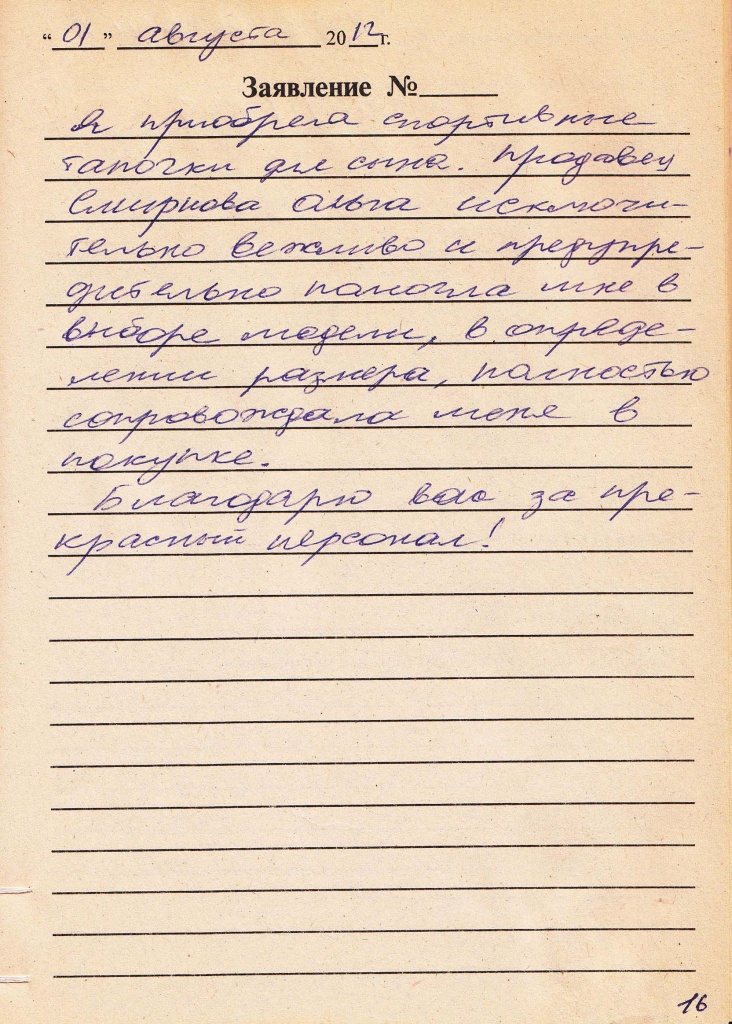 “ 01 ” августа 2012 г.
Заявление №
Я приобрела спортивные
тапочки для сына. Продавец
Смирнова Ольга исключи-
тельно вежливо и предупре-
дительно помогла мне в
выборе модели, в опреде-
лении размера, полностью
сопровождала меня в
покупке.
Благодарю вас за пре-
красный персонал!
16